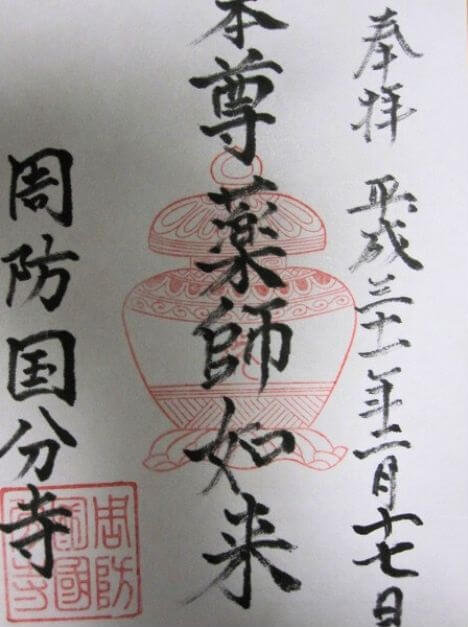 奉拝 平成三十一年二月十七日
本尊薬師如来
周防国分寺
周防